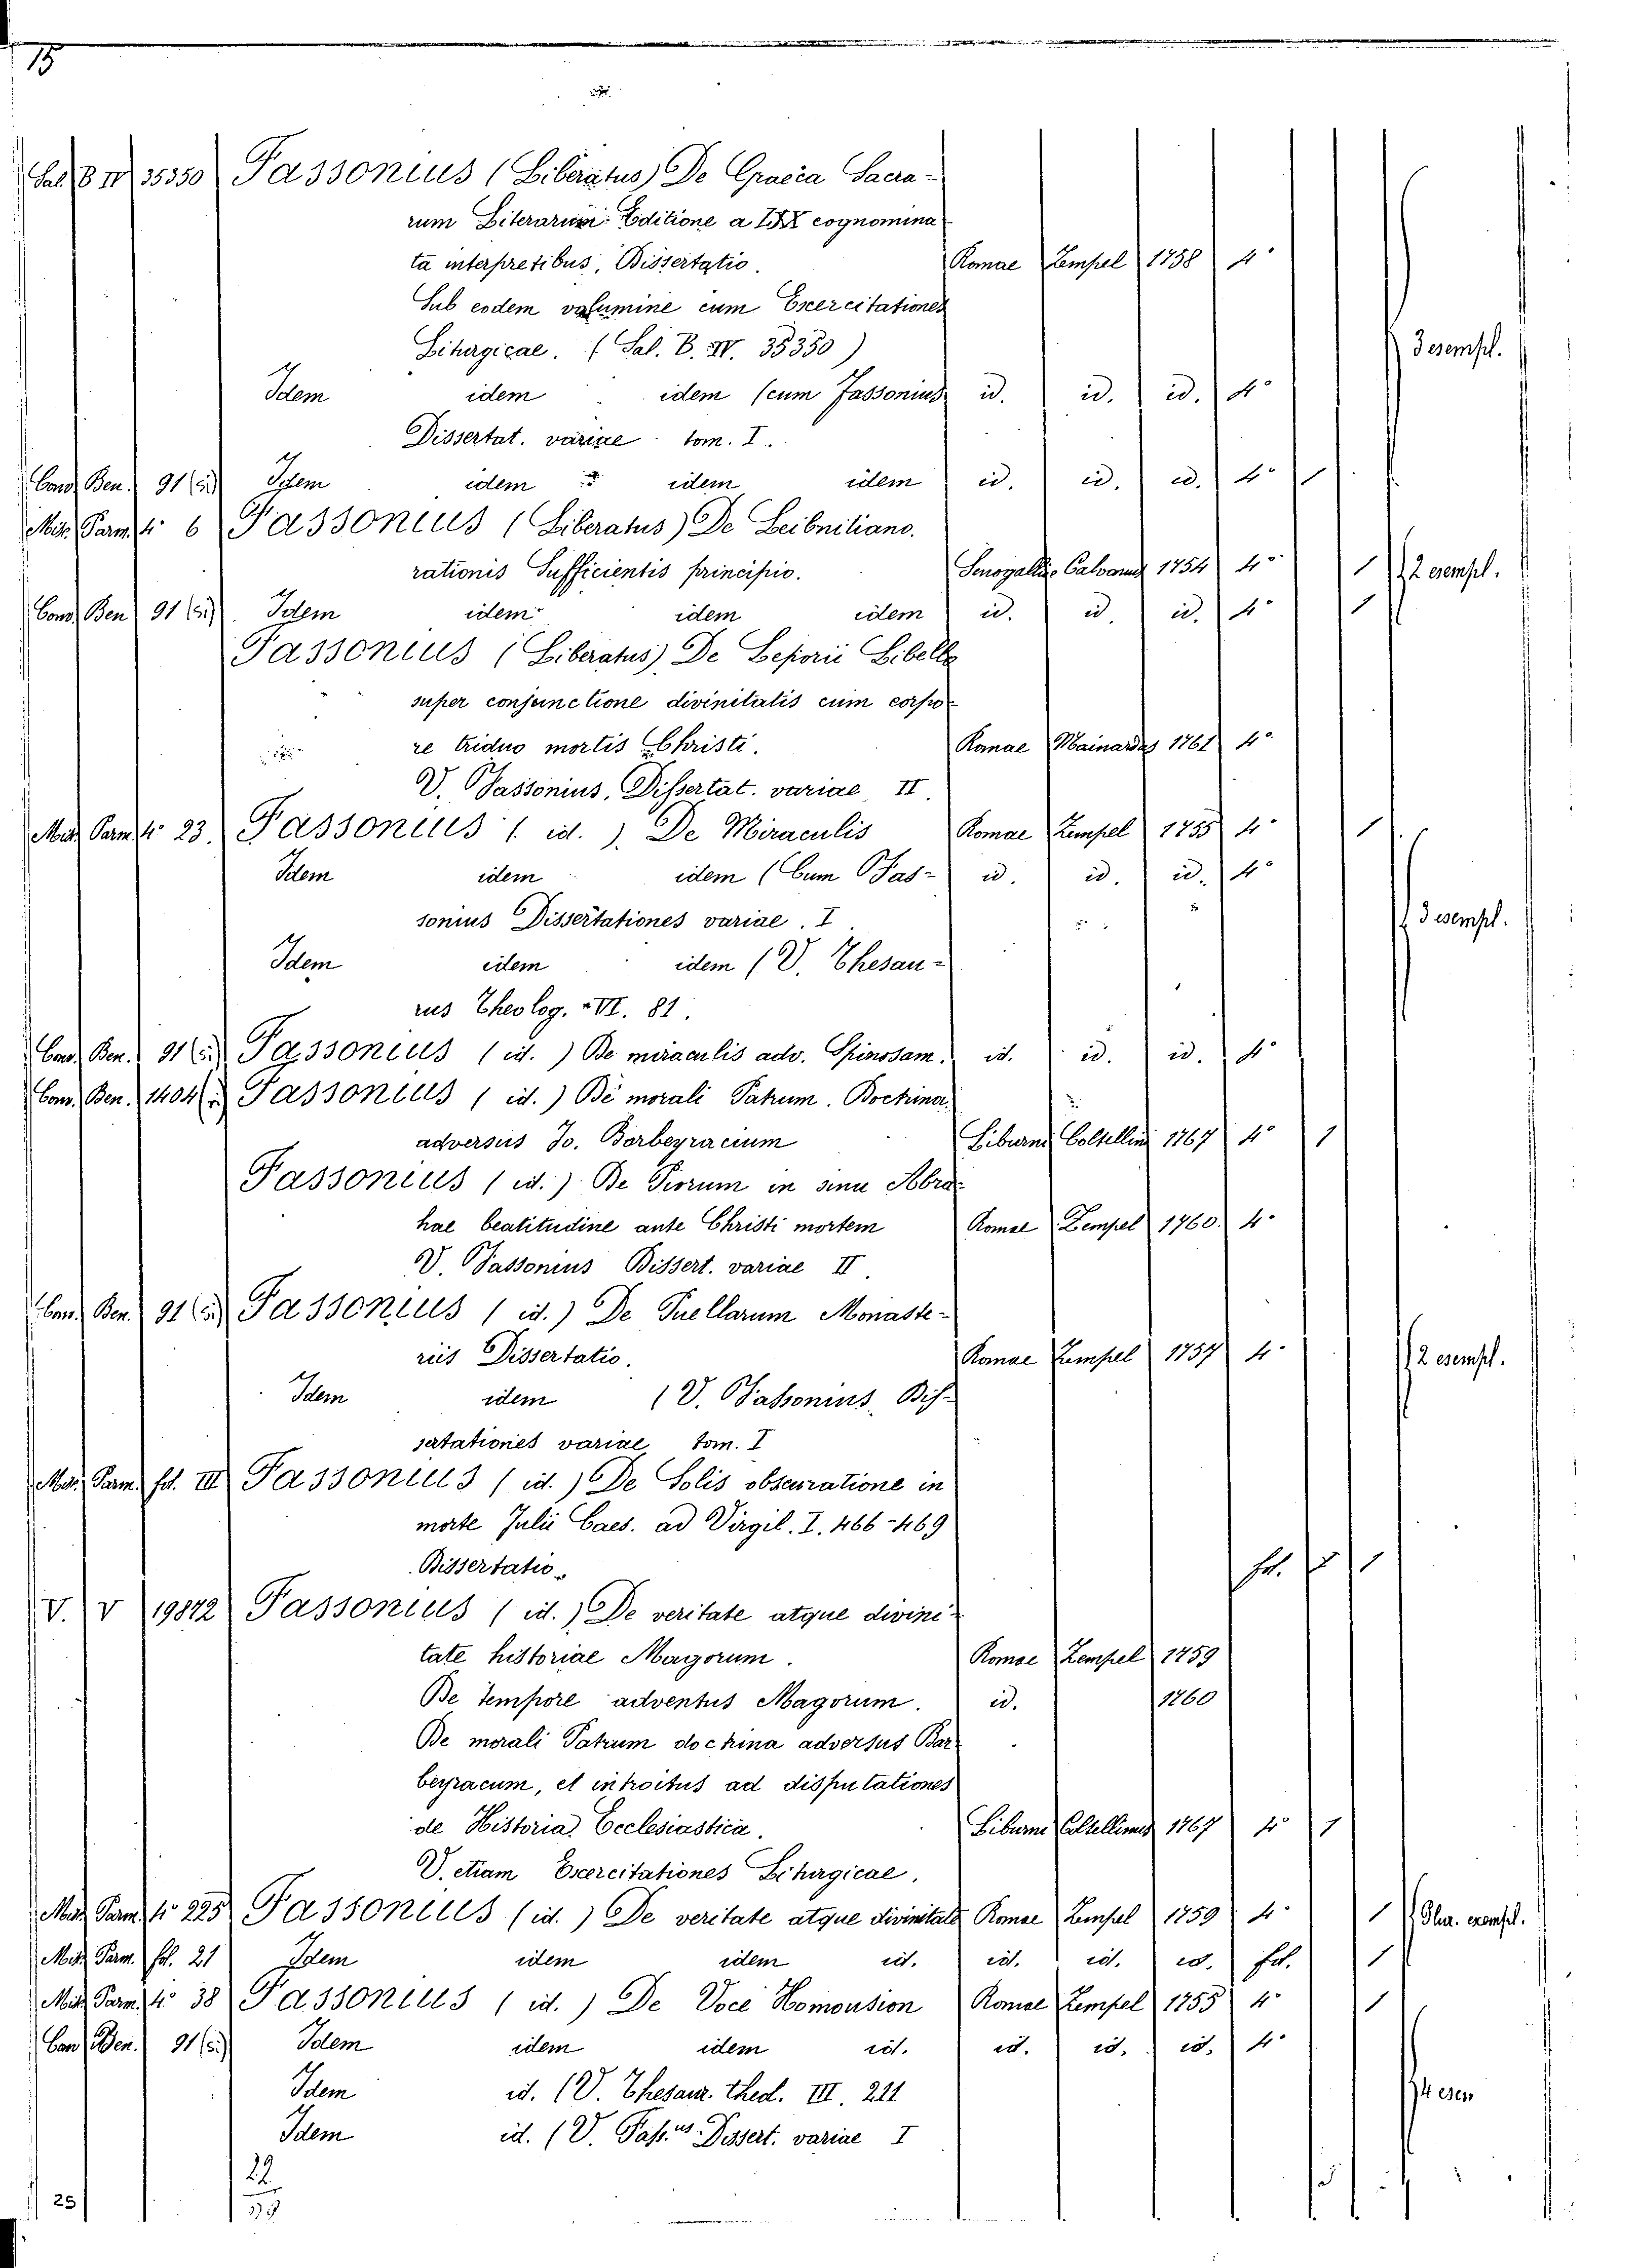 15
Sal. B IV 35350 Passonius (Liberatus) De Graeca Sacra-
rum Literarum Editione a LXX cognomina
ta interpretibus, Dissertatio. Romae Zempel 1758 4°
Sub eodem volumine cum Exercitationes
Liturgicae. (Sal. B. IV. 35350) 3 esempl.
Idem idem idem (cum Passonius id. id. id. 4°
Dissertat. variae tom. I.
Cand. Ben. 91 (5) Idem idem idem idem id. id. id. 4° 1
Misc. Parm. 4° 6 Passonius (Liberatus) De Leibnitiano.
rationis Sufficientis principio. Senogalliae Calvorum 1754 4° 1 2 esempl.
Cand. Ben. 91 (5) Idem idem idem idem id. id id. 4° 1
Passonius (Liberatus) De Leporii Libello
super conjunctione divinitatis cum corpo-
re triduo mortis Christi. Romae Mainardus 1761 4°
V. Passonius, Dissertat. variae II.
Misc. Parm. 4° 23. Passonius (id.) De Miraculis Romae Zempel 1755 4° 1
Idem idem idem (Cum Pas- id. id. id. 4°
sonius Dissertationes variae. I 3 esempl.
Idem idem idem (V. Thesau-
rus Theolog. VI. 81.
Cand. Ben. 91 (5) Passonius (id.) De miraculis adv. Spinosam. id. id. id. 4°
Cand. Ben. 1404 Passonius (id.) De morali Patrum. Doctrina
adversus Jo. Barbeyracium Liburni Coltellini 1767 4° 1
Passonius (id.) De Piorum in sinu Abra-
hae beatitudine ante Christi mortem Romae Zempel 1760. 4°
V. Passonius Dissert. variae II.
Cand. Ben. 91 (5) Passonius (id.) De Puellarum Monaste-
riis Dissertatio. Romae Zempel 1757 4° 2 esempl.
Idem idem (V. Passonius, Dis-
sertationes variae tom. I
Misc. Parm. fol. III Passonius (id.) De Solis obscuratione in
morte Julii Caes. ad Virgil. I. 466-469
Dissertatio. fol. 1
V. V 19872 Passonius (id.) De veritate atque divini-
tate historiae Magorum. Romae Zempel 1759
De tempore adventus Magorum. id. 1760
De morali Patrum doctrina adversus Bar-
beyracum, et introitus ad disputationes
de Historia Ecclesiastica. Liburni Coltellinus 1767 4° 1
V. etiam Exercitationes Liturgicae.
Misc. Parm. 4° 225 Passonius (id.) De veritate atque divinitate Romae Zempel 1759 4° 1 Plur. exempl.
Misc. Parm. fol. 21 Idem idem idem id. id. id. id. fol. 1
Misc. Parm. 4° 38 Passonius (id.) De Voce Homousion Romae Zempel 1755 4° 1
Cand. Ben. 91 (5) Idem idem idem id. id. id. id. 4°
Idem id. (V. Thesaur. theol. III. 211 4 esem
Idem id. (V. Pass.us Dissert. variae I
22
25